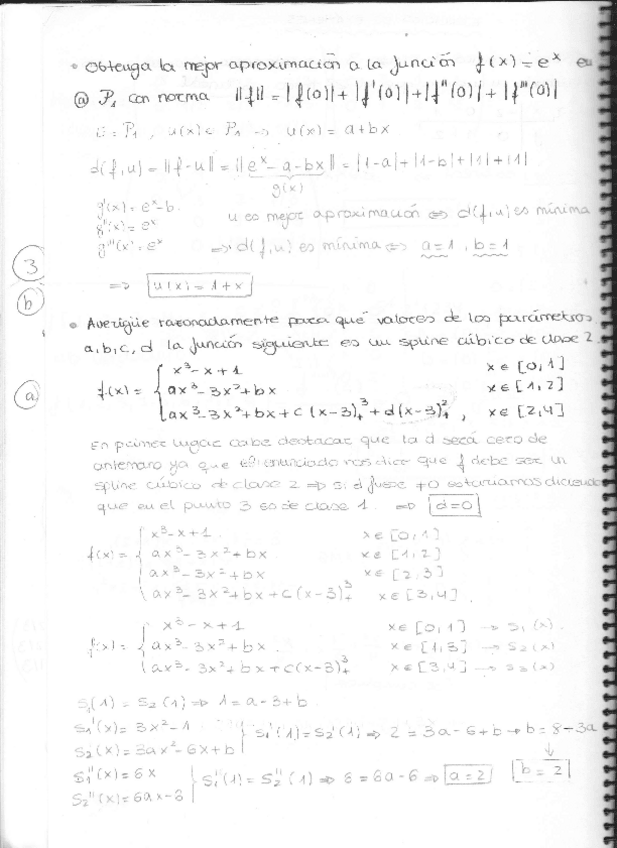 • Obtenga la mejor aproximación a la función f(x) = e^x en
ⓐ P₁ con norma ||f|| = |f(0)| + |f'(0)| + |f''(0)| + |f'''(0)|
U = P₁ , u(x) ∈ P₁ → u(x) = a + bx
d(f,u) = ||f-u|| = ||e^x - a - bx|| = |1-a| + |1-b| + |1| + |1|
g(x)
g'(x) = e^x - b.
g''(x) = e^x
g'''(x) = e^x
u es mejor aproximación ⇔ d(f,u) es mínima
⇒ d(f,u) es mínima ⇔ a=1 , b=1
3
⇒ u(x) = 1+x
b
• Averigüe razonadamente para qué valores de los parámetros
a,b,c,d la función siguiente es un spline cúbico de clase 2.
a
f(x) = { x³ - x + 1 x ∈ [0,1]
ax³ - 3x² + bx x ∈ [1,2]
ax³ - 3x² + bx + c(x-3)³₊ + d(x-3)²₊ , x ∈ [2,4]
En primer lugar cabe destacar que la d será cero de
antemano ya que el enunciado nos dice que f debe ser un
spline cúbico de clase 2 ⇒ si d fuese ≠0 estaríamos diciendo
que en el punto 3 es de clase 1. ⇒ d=0
f(x) = { x³ - x + 1. x ∈ [0,1]
ax³ - 3x² + bx. x ∈ [1,2]
ax³ - 3x² + bx x ∈ [2,3]
ax³ - 3x² + bx + c(x-3)³₊ x ∈ [3,4].
f(x) = { x³ - x + 1 x ∈ [0,1] → S₁(x).
ax³ - 3x² + bx. x ∈ [1,3] → S₂(x)
ax³ - 3x² + bx + c(x-3)³₊ x ∈ [3,4] → S₃(x)
S₁(1) = S₂(1) ⇒ 1 = a - 3 + b.
S₁'(x) = 3x² - 1
S₂'(x) = 3ax² - 6x + b } S₁'(1) = S₂'(1) ⇒ 2 = 3a - 6 + b → b = 8 - 3a
S₁''(x) = 6x
S₂''(x) = 6ax - 6 } S₁''(1) = S₂''(1) ⇒ 6 = 6a - 6 ⇒ a = 2 b = 2